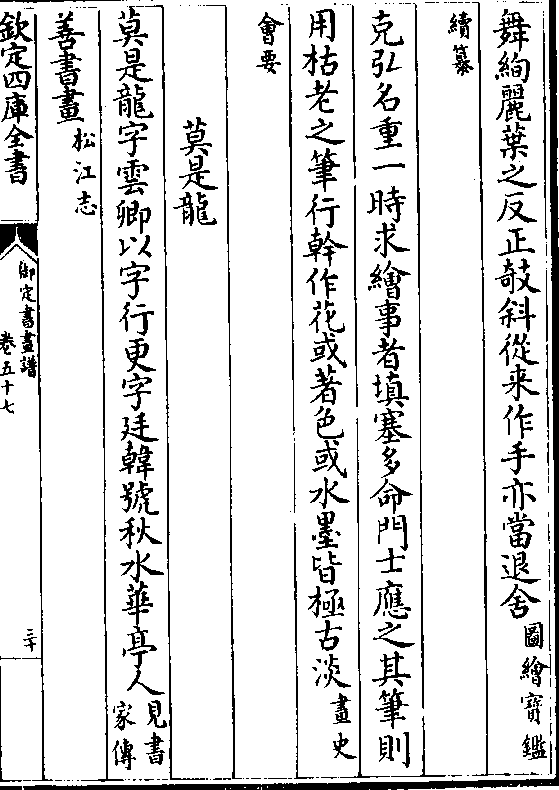 舞絢麗葉之反正攲斜從来作手亦當退舍圖繪寶鑑
續纂
克弘名重一時求繪事者填塞多命門士應之其筆則
用枯老之筆行幹作花或著色或水墨皆極古淡畫史
會要
莫是龍
莫是龍字雲卿以字行更字廷韓號秋水華亭人見書
家傳
善書畫松江志
欽定四庫全書
御定書畫譜
卷五十七
三十